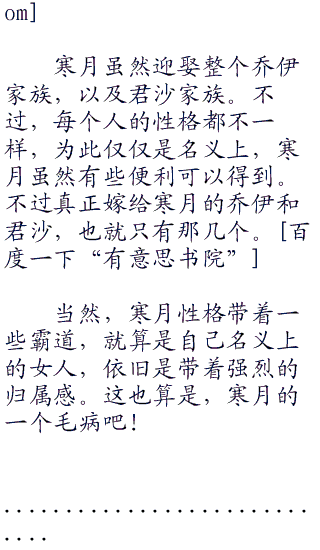 om]
寒月虽然迎娶整个乔伊
家族，以及君沙家族。不
过，每个人的性格都不一
样，为此仅仅是名义上，寒
月虽然有些便利可以得到。
不过真正嫁给寒月的乔伊和
君沙，也就只有那几个。[百
度一下“有意思书院”]
当然，寒月性格带着一
些霸道，就算是自己名义上
的女人，依旧是带着强烈的
归属感。这也算是，寒月的
一个毛病吧！
.........................
....